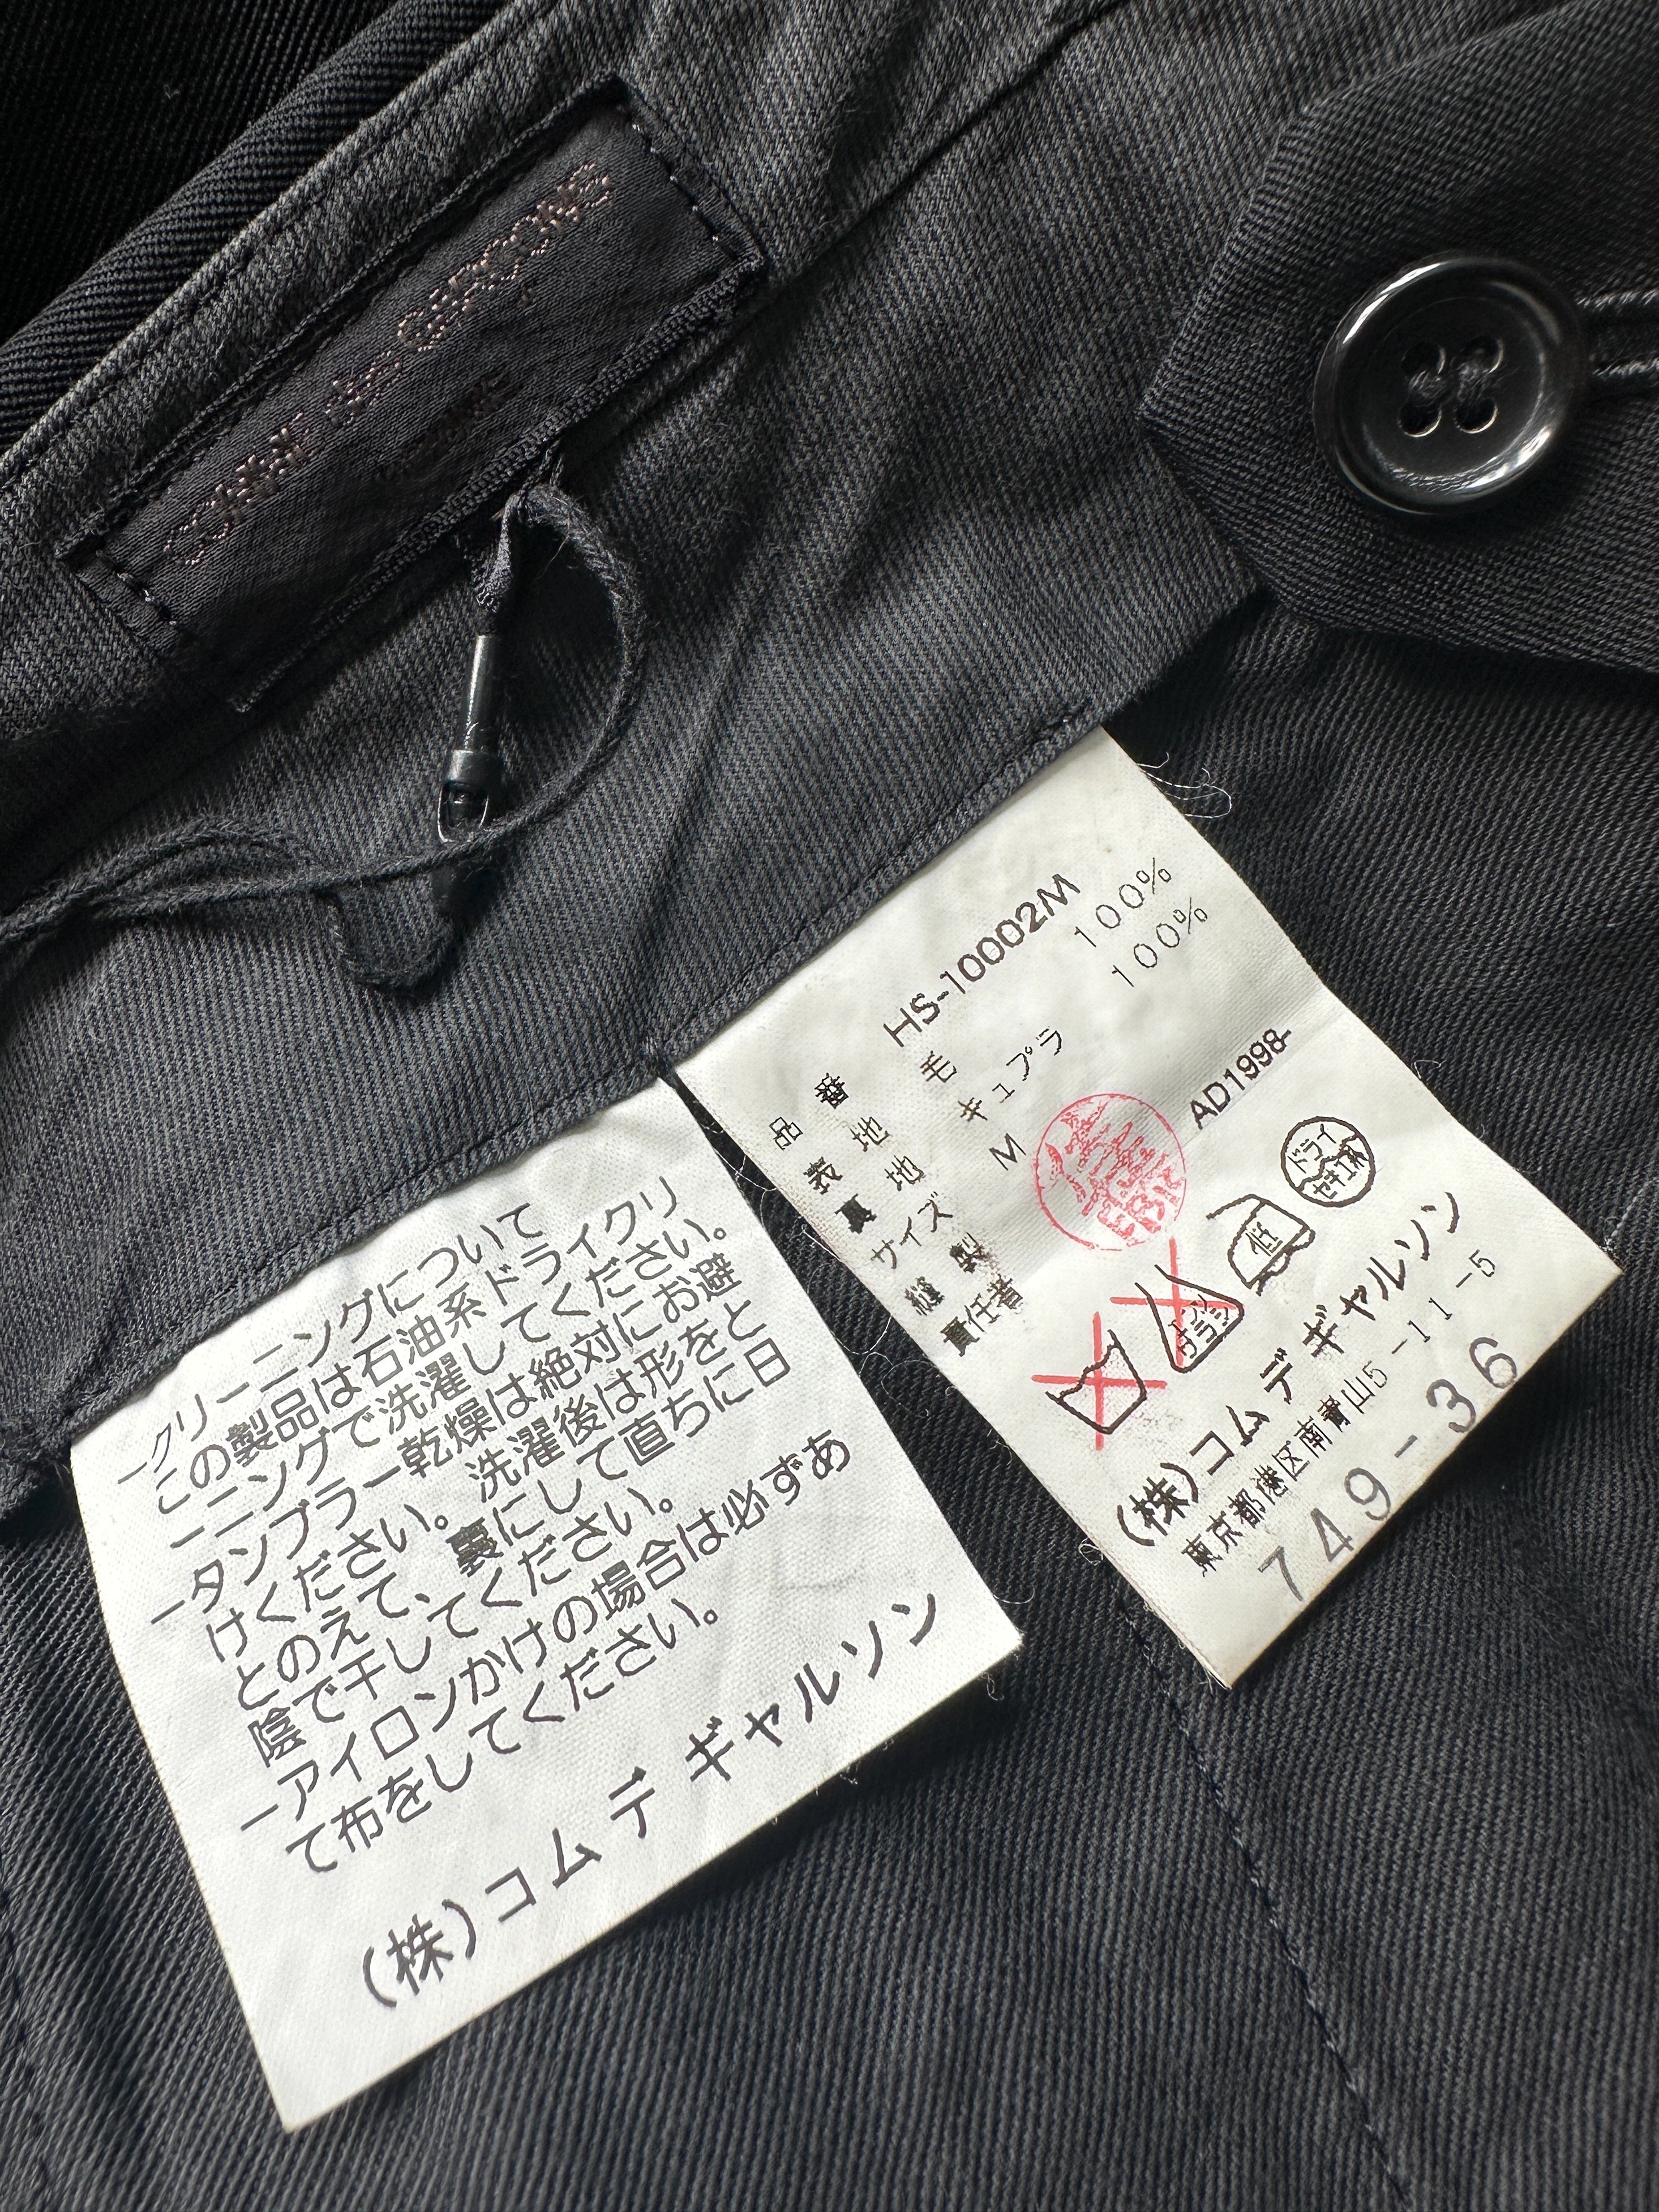 COMME des GARÇONS
HOMME
品　番　HS-10002M
表　地　毛　100%
裏　地　キュプラ　100%
サイズ　M
縫　製
責任者
AD1998-
ドライ
セキユ系
低
エンソ
サラシ
(株)コム デ ギャルソン
東京都港区南青山5-11-5
749-36
ークリーニングについて
この製品は石油系ドライクリ
ーニングで洗濯してください。
ータンブラー乾燥は絶対にお避
けください。洗濯後は形をと
とのえて、裏にして直ちに日
陰で干してください。
ーアイロンかけの場合は必ずあ
て布をしてください。
(株)コム デ ギャルソン